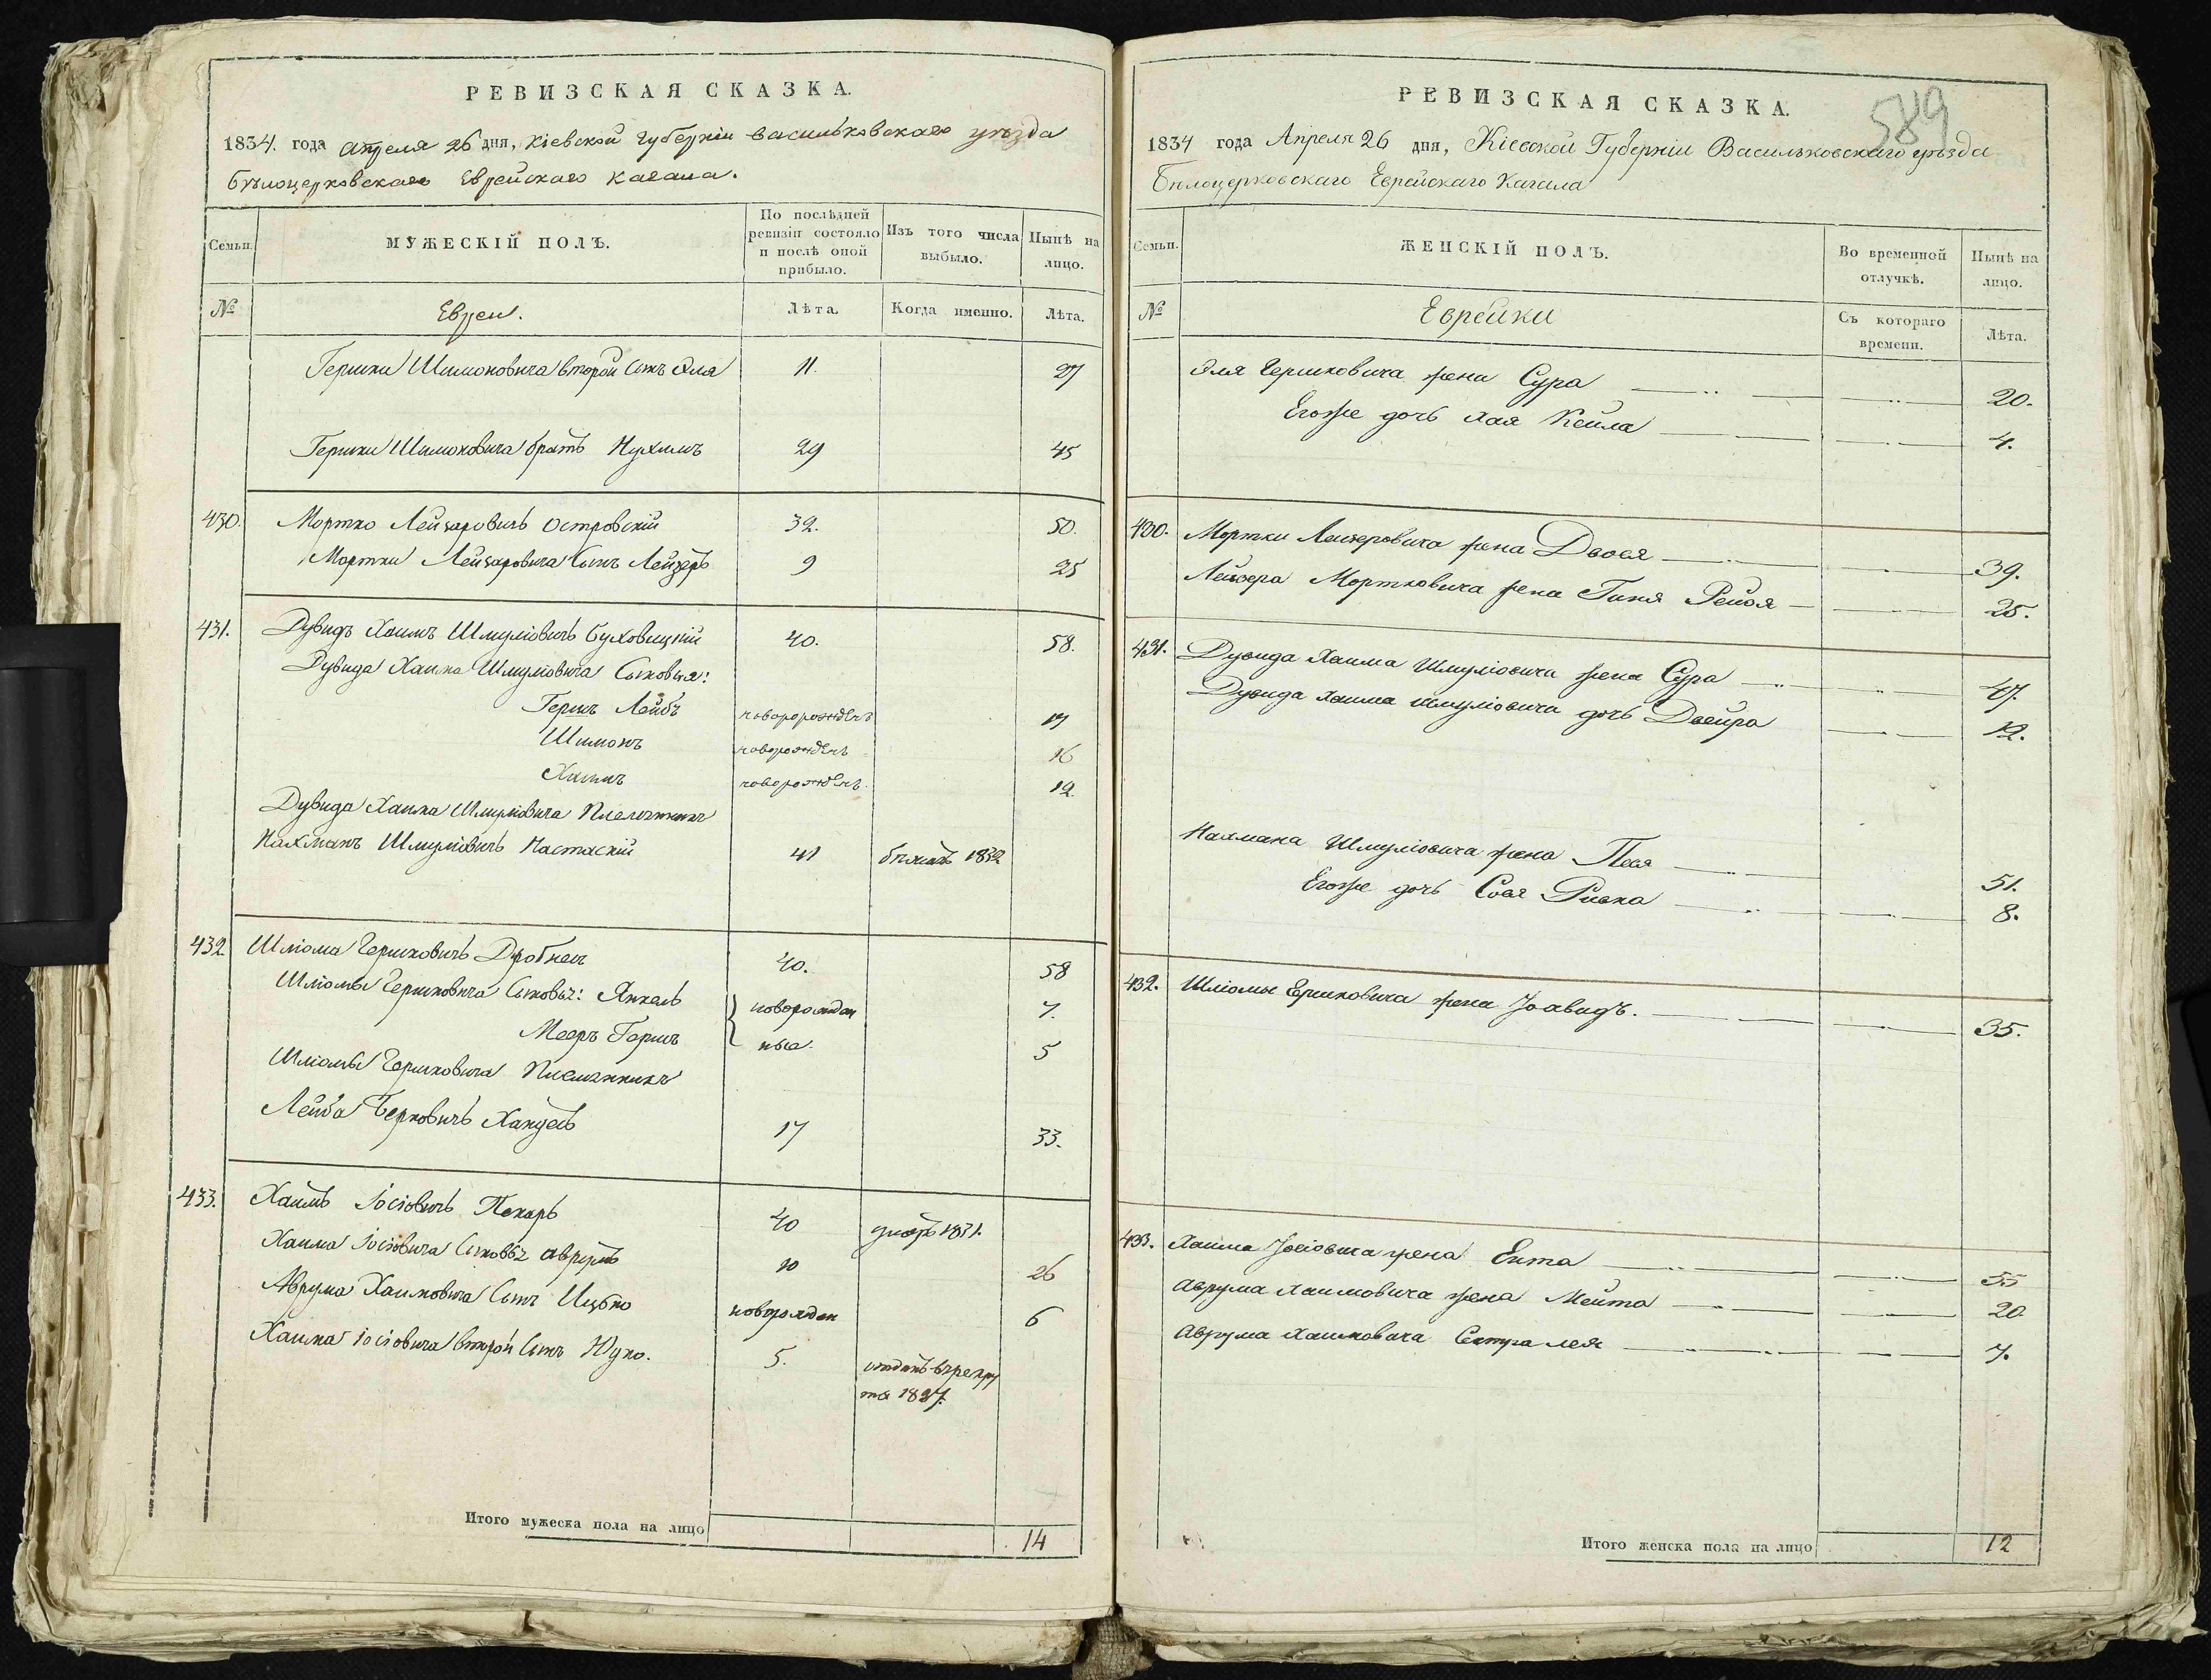 РЕВИЗСКАЯ СКАЗКА.
1834. года апреля 26 дня, Кіевской Губерніи васильковскаго уезда
Бѣлоцерковскаго Еврейскаго Кагала.
Семьи.
МУЖЕСКІЙ ПОЛЪ.
По послѣдней ревизіи состояло и послѣ оной прибыло.
Изъ того числа выбыло.
Нынѣ на лицо.
№
Евреи.
Лѣта.
Когда именно.
Лѣта.
Гершки Шимоновича второй сынъ Эля 11. 27
Гершки Шимоновича братъ Нухимъ 29 45
430. Мортко Лейзаровичъ Островскій 32. 50.
Мортки Лейзаровича сынъ Лейзеръ 9 25
431. Дувидъ Хаимъ Шмуліовичъ Буховицкій 40. 58.
Дувида Хаима Шмуліовича Сыновья:
Гершъ Лейбъ новоророжденъ 17
Шимонъ новорожденъ 16
Хаимъ новорожденъ. 12.
Дувида Хаима Шмуліовича Племянникъ
Нахманъ Шмуліовичъ 41 бѣжалъ 1832
432 Шліома Гершковичъ 40. 58
Шліомы Гершковича Сыновья: Янкель новорожден 7.
Мееръ Гершъ ные. 5
Шліомы Гершковича Племянникъ
Лейба Берковичъ 17 33.
433. Хаимъ Іосіовичъ Пекарь 40 умеръ 1831.
Хаима Іосіовича Сыновья Аврумъ 10 26
Аврума Хаимовича Сынъ Ицько новорожден 6
Хаима Іосіовича второй Сынъ Юдко. 5. отданъ въ рекру
та 1827.
Итого мужеска пола на лицо 14
589
РЕВИЗСКАЯ СКАЗКА.
1834 года Апреля 26 дня, Кіевской Губерніи Васильковскаго уезда
Бѣлоцерковскаго Еврейскаго Кагала
Семьи.
ЖЕНСКІЙ ПОЛЪ.
Во временной отлучкѣ.
Нынѣ на лицо.
№
Еврейки
Съ котораго времени.
Лѣта.
Эля Гершковича жена Сура 20.
Егоже дочь Хая Кейла 4.
430. Мортки Лейзеровича жена Двося 39.
Лейзера Мортковича жена Рейзя 25.
431. Дувида Хаима Шмуліовича жена Сура 47.
Дувида Хаима Шмуліовича дочь Двейра 12.
Нахмана Шмуліовича жена Песя 51.
Егоже дочь Сося Ривка 8.
432. Шліомы Ершковича жена 35.
433. Хаима Іосіовича жена Ента 55
Аврума Хаимовича жена Мейта 20
Аврума Хаимовича Сестра Лея 7.
Итого женска пола на лицо 12